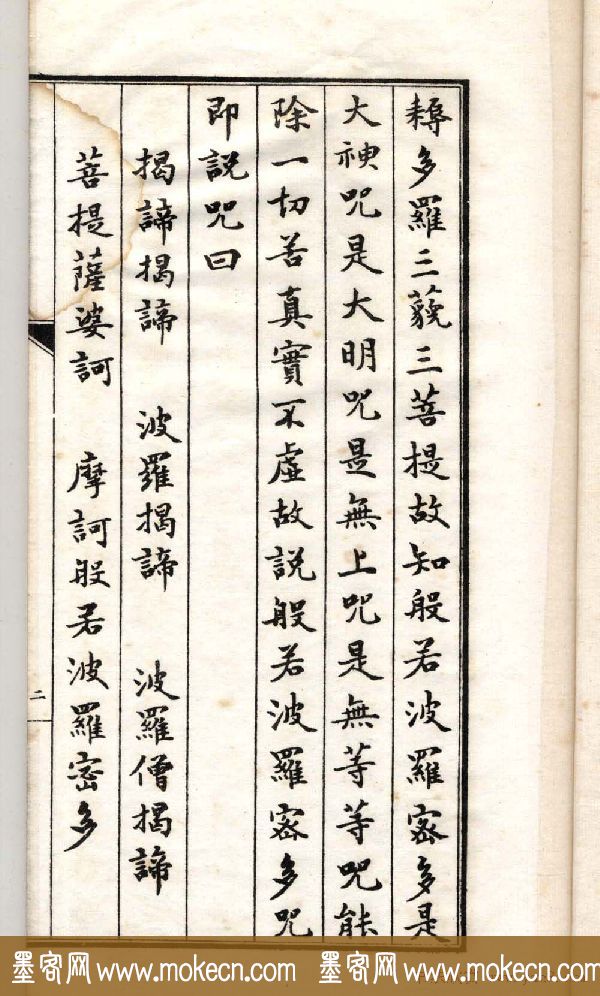 耨多羅三藐三菩提故知般若波羅密多是
大神咒是大明咒是無上咒是無等等咒能
除一切苦真實不虛故說般若波羅密多咒
即說咒曰
揭諦揭諦 波羅揭諦 波羅僧揭諦
菩提薩婆訶 摩訶般若波羅密多
二
墨客网 www.mokecn.com 墨客网 www.mokecn.com